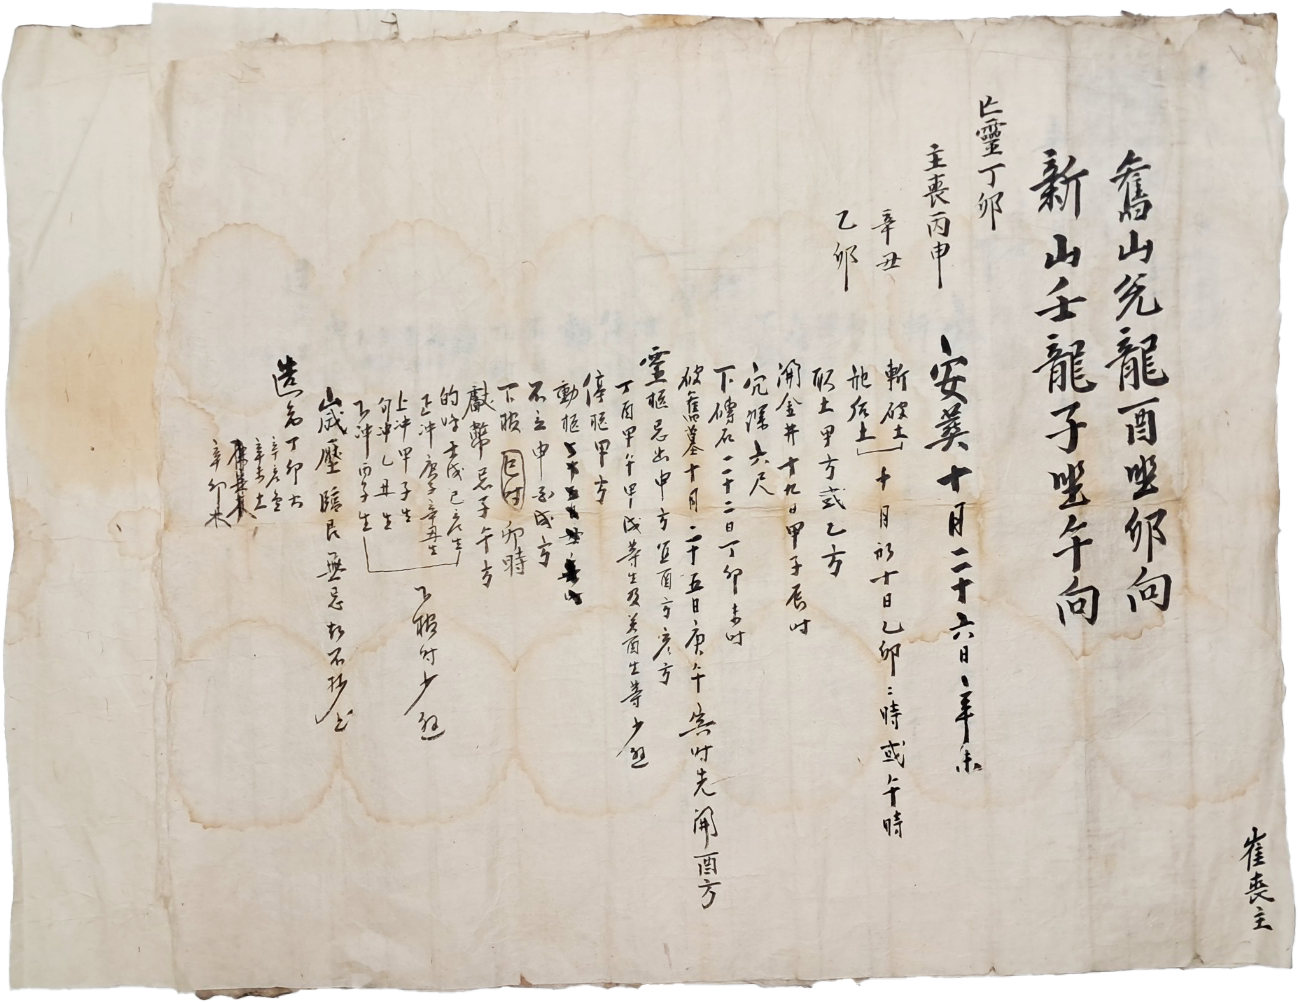 舊山兌龍酉坐卯向
新山壬龍子坐午向
亡靈丁卯
主喪丙申
辛丑
乙卯
安葬十月二十六日辛未
斬破土
祀后土
十月初十日乙卯卯時或午時
取土甲方或乙方
開金井十九日甲子辰時
穴深六尺
下磚石二十二日丁卯未時
破舊墓十月二十五日庚午寅時先開酉方
靈柩忌出申方宜酉方亥方
丁酉甲午甲戌等生及癸酉生等少避
停柩甲方
動柩
不立申子戌方
下棺巳時卯時
獻幣忌子午方
的呼壬戌己亥生
正冲庚子辛丑生
上冲甲子生
旬冲乙丑生
下冲丙子生
下棺時少避
山歲壓臨民無忌故不抄也
造命丁卯火
辛亥金
辛未土
辛卯木
崔喪主